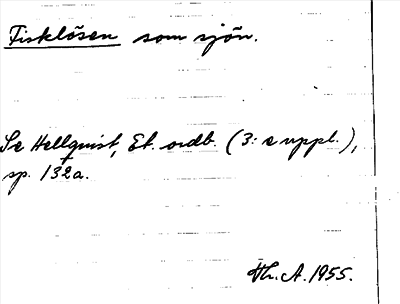 Fisklösen som sjön.
Se Hellquist, Et. ordb. (3:e uppl.),
sp. 132a.
Th. A. 1955.